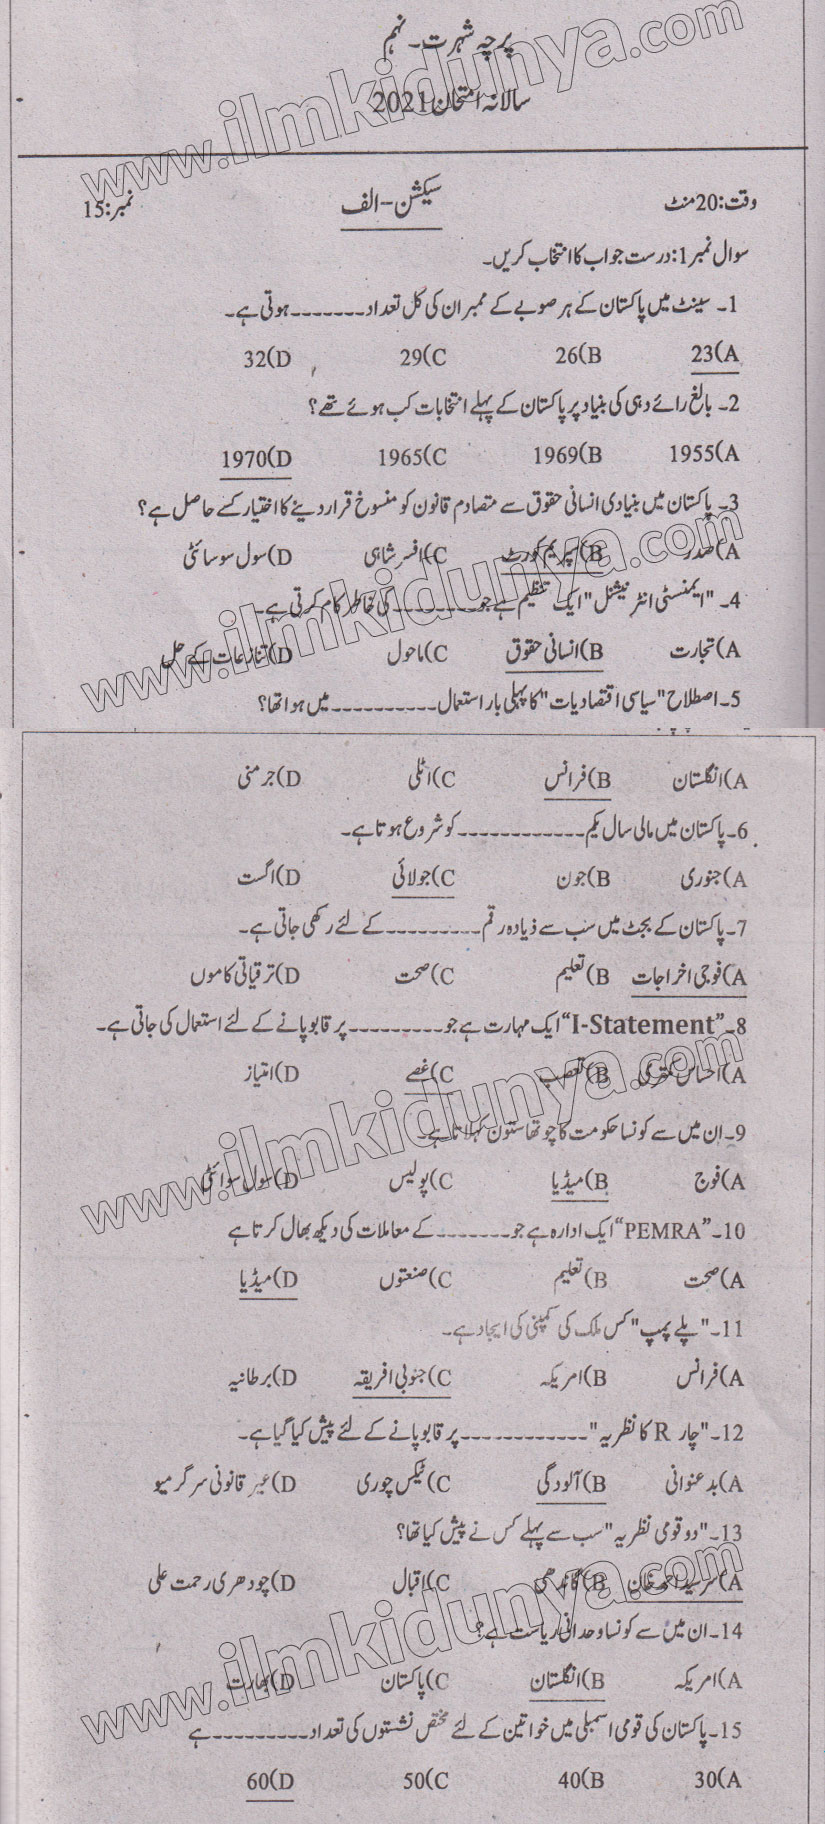 پرچہ شہریت۔ نہم
سالانہ امتحان 2021
وقت:20منٹ سیکشن-الف نمبر:15
سوال نمبر1:درست جواب کا انتخاب کریں۔
1۔ سینٹ میں پاکستان کے ہر صوبے کے ممبران کی کل تعداد-------ہوتی ہے۔
A)23 B)26 C)29 D)32
2۔ بالغ رائے دہی کی بنیاد پر پاکستان کے پہلے انتخابات کب ہوئے تھے؟
A)1955 B)1969 C)1965 D)1970
3۔ پاکستان میں بنیادی انسانی حقوق سے متصادم قانون کو منسوخ قرار دینے کا اختیار کسے حاصل ہے؟
A)صدر B)سپریم کورٹ C)افسر شاہی D)سول سوسائٹی
4۔ "ایمنسٹی انٹرنیشنل" ایک تنظیم ہے جو--------کی خاطر کام کرتی ہے۔
A)تجارت B)انسانی حقوق C)ماحول D)تنازعات کے حل
5۔اصطلاح "سیاسی اقتصادیات" کا پہلی بار استعمال----------میں ہوا تھا؟
A)انگلستان B)فرانس C)اٹلی D)جرمنی
6۔پاکستان میں مالی سال یکم------------کو شروع ہوتا ہے۔
A)جنوری B)جون C)جولائی D)اگست
7۔پاکستان کے بجٹ میں سب سے ذیادہ رقم---------کے لئے رکھی جاتی ہے۔
A)فوجی اخراجات B)تعلیم C)صحت D)ترقیاتی کاموں
8۔"I-Statement" ایک مہارت ہے جو---------پر قابو پانے کے لئے استعمال کی جاتی ہے۔
A)احساس کمتری B)تعصب C)غصے D)امتیاز
9۔ان میں سے کونسا حکومت کا چوتھا ستون کہلاتا ہے۔
A)فوج B)میڈیا C)پولیس D)سول سوائٹی
10۔"PEMRA" ایک ادارہ ہے جو-------کے معاملات کی دیکھ بھال کرتا ہے
A)صحت B)تعلیم C)صنعتوں D)میڈیا
11۔"پلے پمپ" کس ملک کی کمپنی کی ایجاد ہے۔
A)فرانس B)امریکہ C)جنوبی افریقہ D)برطانیہ
12۔"چار R کا نظریہ"------------پر قابو پانے کے لئے پیش کیا گیا ہے۔
A)بدعنوانی B)آلودگی C)ٹیکس چوری D)غیر قانونی سرگرمیو
13۔"دو قومی نظریہ" سب سے پہلے کس نے پیش کیا تھا؟
A)سرسید احمد خان B)گاندھی C)اقبال D)چودھری رحمت علی
14۔ان میں سے کونسا وحدانی ریاست ہے؟
A)امریکہ B)انگلستان C)پاکستان D)بھارت
15۔پاکستان کی قومی اسمبلی میں خواتین کے لئے مختص نشستوں کی تعداد---------ہے
A)30 B)40 C)50 D)60
www.ilmkidunya.com
www.ilmkidunya.com
www.ilmkidunya.com
www.ilmkidunya.com